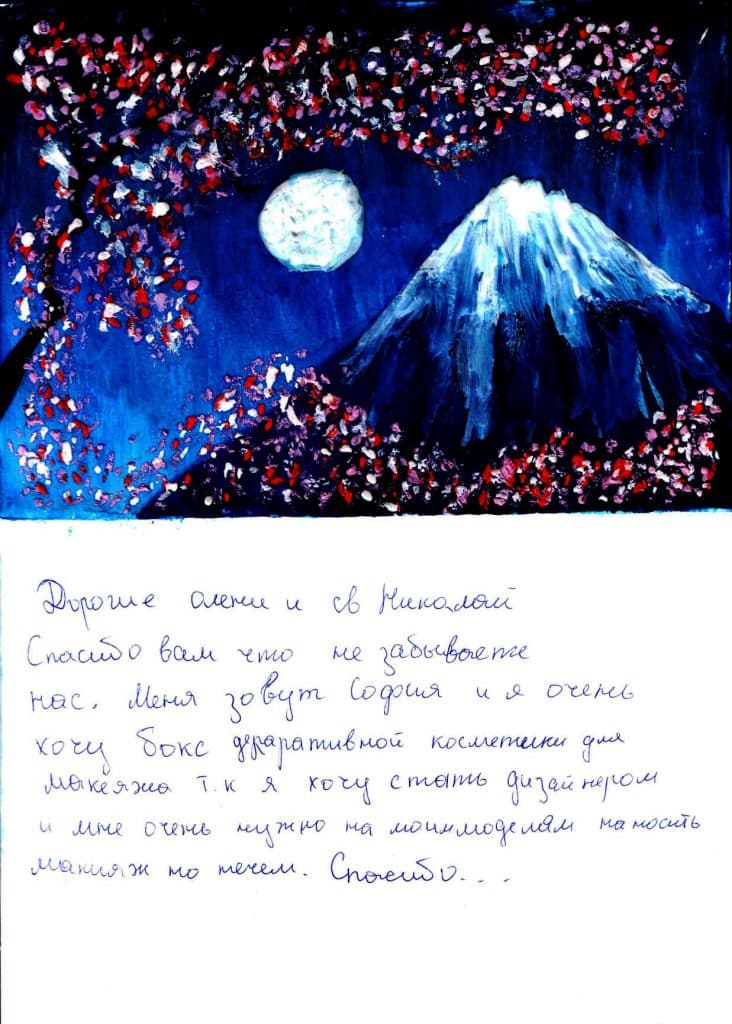 Дорогие олени и св Николай
Спасибо вам что не забываете
нас. Меня зовут София и я очень
хочу бокс деκаративной косметики для
макеяжа т.к я хочу стать дизайнером
и мне очень нужно на моиммоделям наносить
макияж но нечем. Спасибо...